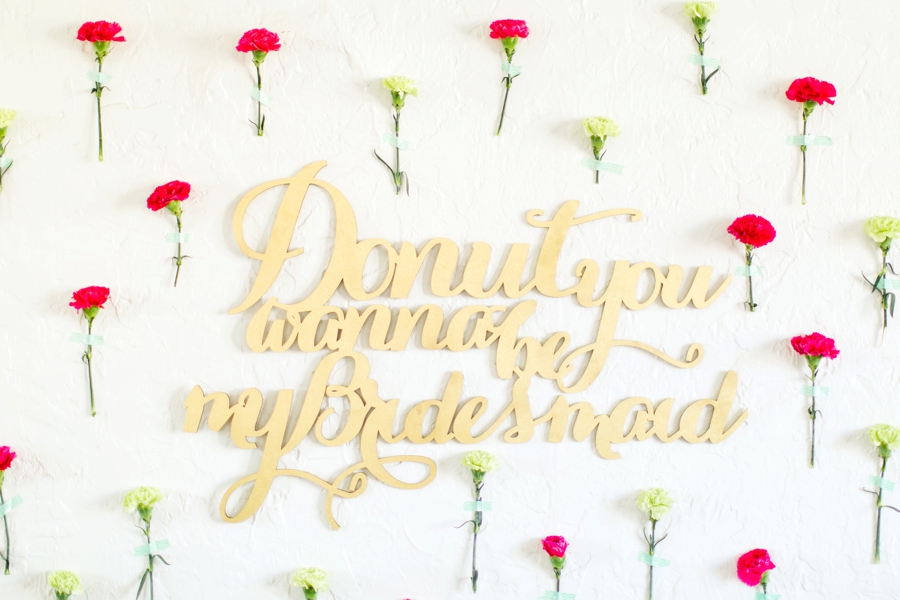 Donut you
wanna be
my Bridesmaid